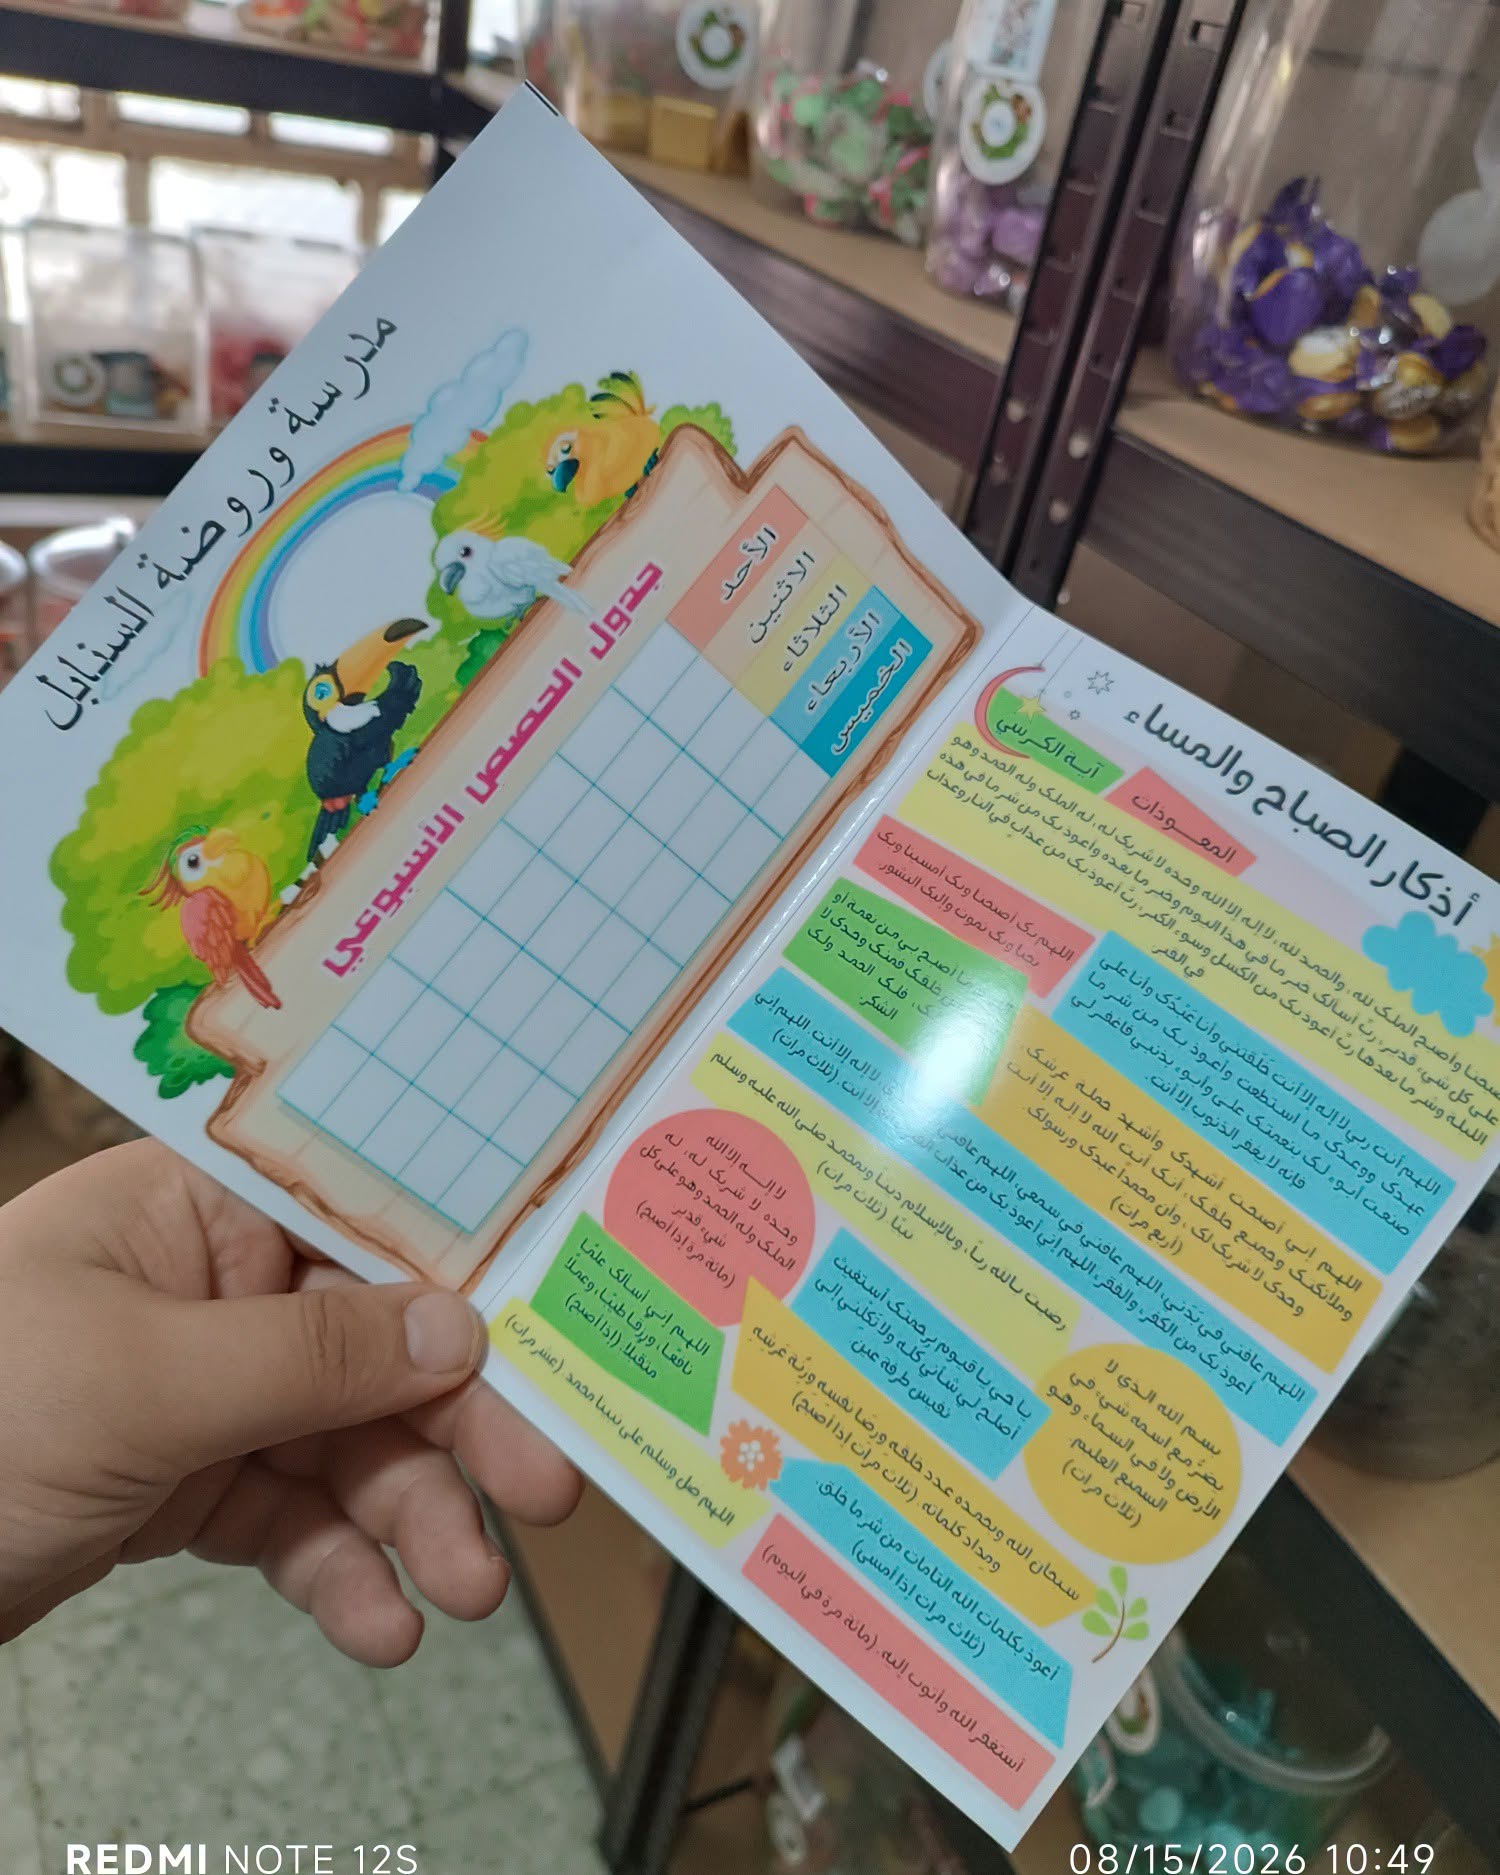 مدرسة وروضة السنابل
جدول الحصص الأسبوعي
الأحد
الاثنين
الثلاثاء
الأربعاء
الخميس
أذكار الصباح والمساء
آية الكرسي
المعـــوذات
وأصبح الملك لله، والحمد لله، لا إله إلا الله وحده لا شريك له، له الملك وله الحمد وهو
على كل شيء قدير، ربّ أسألك خير ما في هذا اليوم وخير ما بعده وأعوذ بك من شر ما في هذه
الليلة وشر ما بعدها ربّ أعوذ بك من الكسل وسوء الكبر، ربّ أعوذ بك من عذاب في النار وعذاب
في القبر
اللهم بك أصبحنا وبك أمسينا وبك
نحيا وبك نموت وإليك النشور.
اللهم أنت ربي لا إله إلا أنت خَلَقتني وأنا عَبْدُك وأنا على
عهدك ووعدك ما استطعت وأعوذ بك من شر ما
صنعت أبوء لك بنعمتك علي وأبوء بذنبي فاغفر لي
فإنه لا يغفر الذنوب إلا أنت.
ما أصبح بي من نعمة أو
خلقك فمنك وحدك لا
لك، فلك الحمد ولك
الشكر.
اللهم إني أصبحت أشهدك وأشهد حملة عرشك
وملائكتك وجميع خلقك، أنك أنت الله لا إله إلا أنت
وحدك لا شريك لك، وأن محمداً عبدك ورسولك.
(أربع مرات)
اللهم عافني في بَدَني، اللهم عافني في سمعي، اللهم عافني لا إله إلا أنت. اللهم إني
أعوذ بك من الكفر، والفقر، اللهم إني أعوذ بك من عذاب القبر إلا أنت. (ثلاث مرات)
رضيت بـالله ربـاً، وبـالإسـلام دينـاً وبمحمـد صلى الله عليه وسلم
نبيّا. (ثلاث مرات)
لا إلــه إلا الله
وحـده لا شريـك لـه، لـه
الملك وله الحمد وهو على كل
شيء قدير
(مائة مرة إذا أصبح)
يا حي يا قيـوم برحمتـك أستغيـث
أصلح لي شأني كُلَه ولا تَكِلْني إلى
نفسي طرفة عين
بسـم الله الـذي لا
يضرّ مع اسمه شيء في
الأرض ولا في السماء وهـو
السميع العليم.
(ثلاث مرات)
اللهم إني أسألك علمًا
نافعًا، ورزقا طيبًا، وعملًا
متقبلًا. (إذا أصبح)
سبحان الله وبحمده عدد خلقه ورضا نفسه وزِنَة عَرشِه
ومداد كلماته. (ثلاث مرات إذا أصبح)
اللهم صل وسلم على نبينا محمد (عشر مرات)
أعوذ بكلمات الله التامات من شر ما خلق.
(ثلاث مرات إذا أمسى)
أستغفر الله وأتوب إليه. (مائة مرة في اليوم)
REDMI NOTE 12S
08/15/2026 10:49